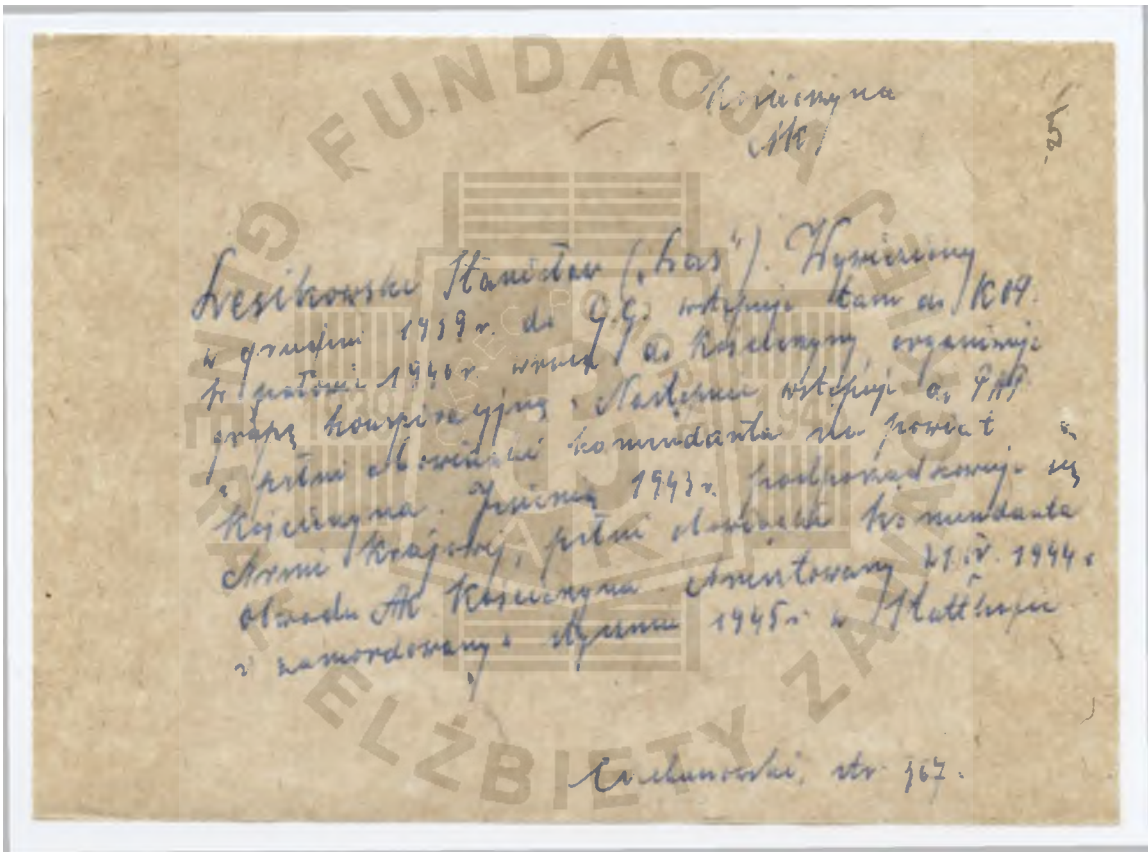 Kościerzyna
AK
5
Lesikowski Stanisław („Las"). Wywieziony
w grudniu 1939 r. do G.G. wstępuje tam do KOP.
W połowie 1940 r. wraca do Kościerzyny, organizuje
grupę konspiracyjną. Następnie wstępuje do PAP
i pełni obowiązki komendanta na powiat
Kościerzyna. Jesienią 1943 r. podporządkowuje się
Armii Krajowej, pełni obowiązki komendanta
obwodu AK Kościerzyna. Aresztowany 21.IV.1944 r
i zamordowany w styczniu 1945 r w Stutthofie
Ciechanowski, str. 167.
FUNDACJA GENERAŁ ELŻBIETY ZAWACKIEJ